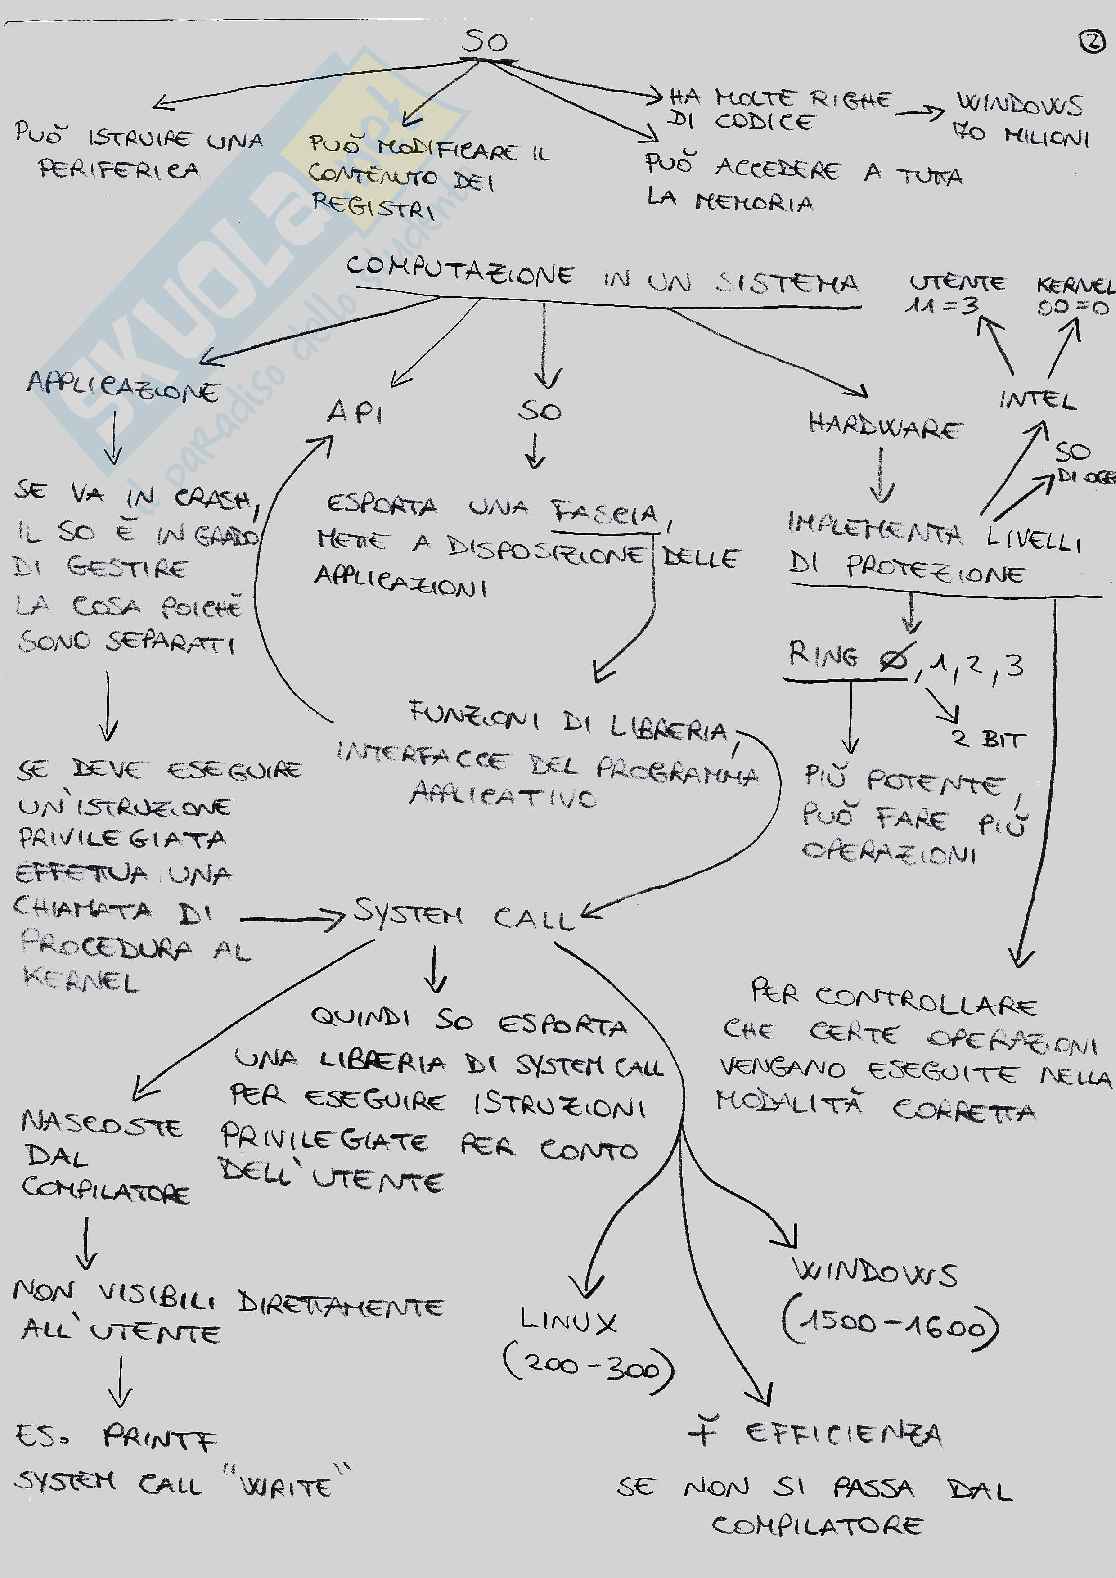 SO
2
PUÒ ISTRUIRE UNA
PERIFERICA
PUÒ MODIFICARE IL
CONTENUTO DEI
REGISTRI
HA MOLTE RIGHE
DI CODICE
WINDOWS
70 MILIONI
PUÒ ACCEDERE A TUTTA
LA MEMORIA
SKUOLA.net
il paradiso dello studente
COMPUTAZIONE IN UN SISTEMA
UTENTE
11=3
KERNEL
00=0
INTEL
SO
DI OGGI
APPLICAZIONE
API
SO
HARDWARE
SE VA IN CRASH,
IL SO È IN GRADO
DI GESTIRE
LA COSA POICHÈ
SONO SEPARATI
ESPORTA UNA FASCIA,
METTE A DISPOSIZIONE DELLE
APPLICAZIONI
IMPLEMENTA LIVELLI
DI PROTEZIONE
RING 0, 1, 2, 3
2 BIT
PIÙ POTENTE,
PUÒ FARE PIÙ
OPERAZIONI
FUNZIONI DI LIBRERIA,
INTERFACCE DEL PROGRAMMA
APPLICATIVO
SE DEVE ESEGUIRE
UN'ISTRUZIONE
PRIVILEGIATA
EFFETTUA UNA
CHIAMATA DI
PROCEDURA AL
KERNEL
SYSTEM CALL
QUINDI SO ESPORTA
UNA LIBRERIA DI SYSTEM CALL
PER ESEGUIRE ISTRUZIONI
PRIVILEGIATE PER CONTO
DELL'UTENTE
PER CONTROLLARE
CHE CERTE OPERAZIONI
VENGANO ESEGUITE NELLA
MODALITÀ CORRETTA
NASCOSTE
DAL
COMPILATORE
NON VISIBILI DIRETTAMENTE
ALL'UTENTE
ES. PRINTF
SYSTEM CALL "WRITE"
LINUX
(200-300)
WINDOWS
(1500-1600)
EFFICIENZA
SE NON SI PASSA DAL
COMPILATORE